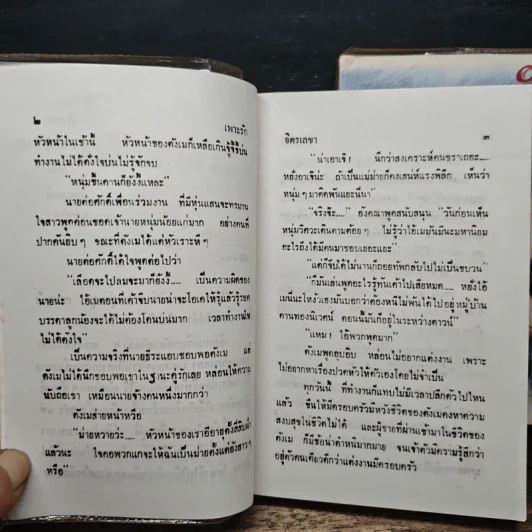 ๒
เพาะรัก
หัวหน้าในเช้านี้ หัวหน้าของดังเมก็เหลือเกินจู้จี้ขี้บ่น
ทำงานไม่ได้ดั่งใจบ่นไม่รู้จักจบ
"หนุ่มขึ้นคานก็ยังงี้แหละ"
นายต่อศักดิ์เพื่อนร่วมงาน ที่มีหุ่นแสนจะทรมาน
ใจสาวพูดค่อนขอดเจ้านายหนุ่มน้อยแก่มาก อย่างคนที่
ปากคันยิบๆ ขณะที่ดังเมได้แต่หัวเราะหึๆ
นายต่อศักดิ์ได้ใจพูดต่อไปว่า
"เลือดจะไปลมจะมาก็ยังงี้.... เป็นความผิดของ
นายน่ะ ไอ้เมตอนที่เค้าจีบนายน่าจะโอเคให้รู้แล้วรู้รอด
บรรดาลูกน้องจะได้ไม่ต้องโดนบ่นมาก เวลาทำงาน
ไม่ได้ดั่งใจ"
เป็นความจริงที่นายธีระแอบชอบพอดังเม แต่
ดังเมไม่ได้นึกชอบพอเขาในฐานะคู่รักเลย หล่อนให้ความ
นับถือเขา เหมือนนายจ้างคนหนึ่งมากกว่า
ดังเมส่ายหน้าหวือ
"ม่ายหวายว่ะ.... หัวหน้าของเราอีอายุตั้งสี่สิบ
แล้วนะ ใจคอพวกแกจะให้ฉันเป็นม่ายตั้งแต่ยังสาวๆ
หรือ"
จิตรเลขา
๓
"น่าเอาเจ๊! นึกว่าสงเคราะห์คนชราเถอะ....
หยังเอาเจ๊น่ะ ถ้าเป็นแม่ม่ายก็คงเสน่ห์แรงพิลึก เห็นว่า
หนุ่มๆ มาติดพันแยะนี่นา"
"จริงจ้ะ...." องคณาพูดสนับสนุน "วันก่อนเห็น
หนุ่มวิศวะเดินตามต้อยๆ ไม่รู้ว่าไอ้เมมันมีนะมหานิยม
อะไรถึงได้มีคนมาชอบเยอะแยะ"
"แต่ก็จีบได้ไม่นานก็ถอยทัพกลับไปไม่เป็นขบวน"
"ก็มันเล่นพูดอะไรรู้ทันเค้าไปเสียหมด.... หยังไอ้
เมนี่นะไหว้เองมันบอกว่าต้องหนีไม่พ้นได้ไปอยู่หมู่บ้าน
คานทองนิเวศน์ ตอนนี้มันก็อยู่ในระหว่างดาวน์"
"แหม! ไอ้พวกพูดมาก"
ดังเมพูดอุบอิบ หล่อนไม่อยากแต่งงาน เพราะ
ไม่อยากหาเรื่องปวดหัวให้ตัวเองโดยไม่จำเป็น
ทุกวันนี้ ที่ทำงานก็แทบไม่มีเวลาปลีกตัวไปไหน
แล้ว ขืนให้มีครอบครัวมีหวังชีวิตของดังเมคงหาความ
สงบสุขในชีวิตไม่ได้ และผู้ชายที่ผ่านเข้ามาในชีวิตของ
ดังเม ก็มีข้อน่าตำหนิมากมาย จนเจ้าตัวมีความรู้สึกว่า
อยู่ตัวคนเดียวดีกว่าแต่งงานมีครอบครัว